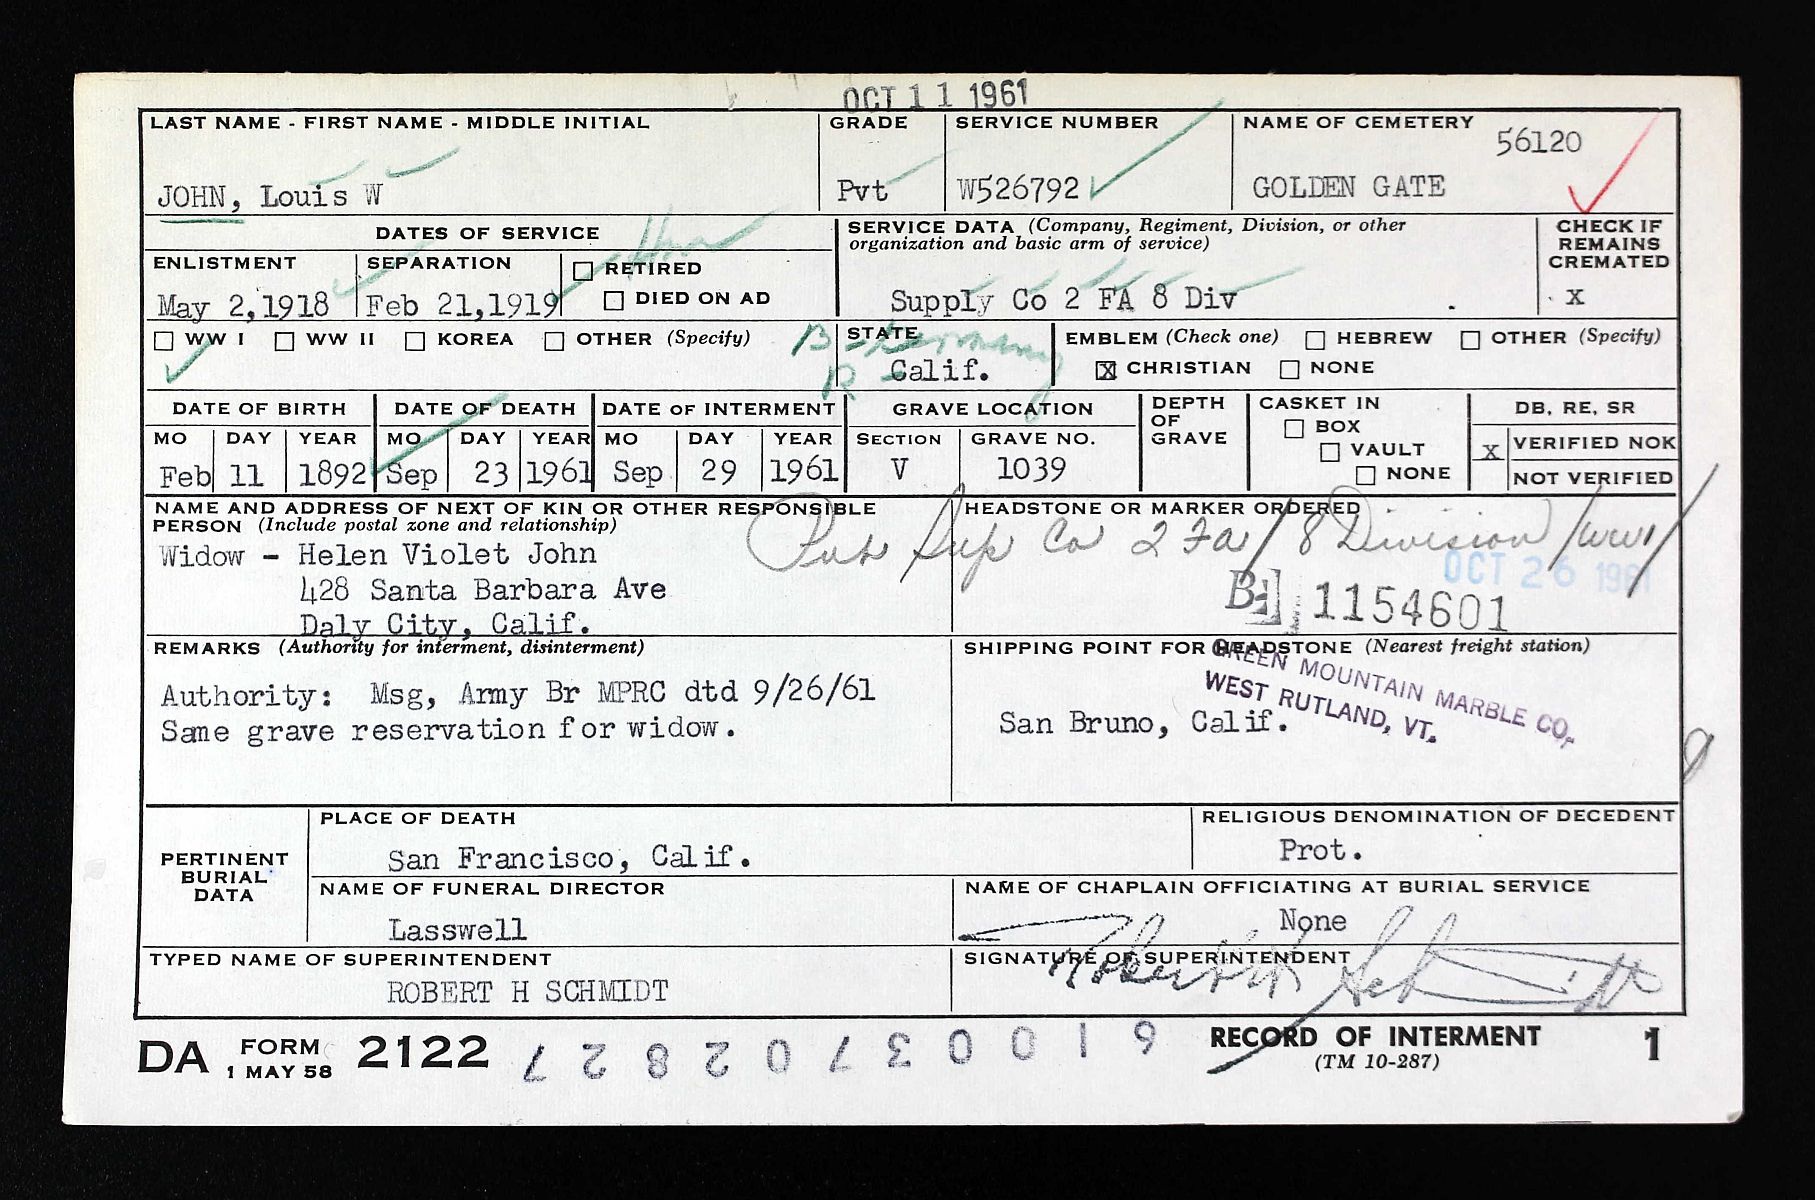 OCT 11 1961
LAST NAME - FIRST NAME - MIDDLE INITIAL
JOHN, Louis W
GRADE
Pvt
SERVICE NUMBER
W526792
NAME OF CEMETERY
56120
GOLDEN GATE
DATES OF SERVICE
ENLISTMENT
May 2,1918
SEPARATION
Feb 21,1919
RETIRED
DIED ON AD
SERVICE DATA (Company, Regiment, Division, or other
organization and basic arm of service)
Supply Co 2 FA 8 Div
CHECK IF
REMAINS
CREMATED
X
WW I WW II KOREA OTHER (Specify)
STATE
B - Germany
R -
Calif.
EMBLEM (Check one) HEBREW OTHER (Specify)
X CHRISTIAN NONE
DATE OF BIRTH
MO DAY YEAR
Feb 11 1892
DATE OF DEATH
MO DAY YEAR
Sep 23 1961
DATE OF INTERMENT
MO DAY YEAR
Sep 29 1961
GRAVE LOCATION
SECTION GRAVE NO.
V 1039
DEPTH
OF
GRAVE
CASKET IN
BOX
VAULT
NONE
DB, RE, SR
X VERIFIED NOK
NOT VERIFIED
NAME AND ADDRESS OF NEXT OF KIN OR OTHER RESPONSIBLE
PERSON (Include postal zone and relationship)
Widow - Helen Violet John
428 Santa Barbara Ave
Daly City, Calif.
HEADSTONE OR MARKER ORDERED
Pvt Sup Co 2 Fa / 8 Division / WWI /
OCT 26 1961
1154601
REMARKS (Authority for interment, disinterment)
Authority: Msg, Army Br MPRC dtd 9/26/61
Same grave reservation for widow.
SHIPPING POINT FOR HEADSTONE (Nearest freight station)
GREEN MOUNTAIN MARBLE CO,
WEST RUTLAND, VT.
San Bruno, Calif.
PERTINENT
BURIAL
DATA
PLACE OF DEATH
San Francisco, Calif.
RELIGIOUS DENOMINATION OF DECEDENT
Prot.
NAME OF FUNERAL DIRECTOR
Lasswell
NAME OF CHAPLAIN OFFICIATING AT BURIAL SERVICE
None
TYPED NAME OF SUPERINTENDENT
ROBERT H SCHMIDT
SIGNATURE OF SUPERINTENDENT
Robert H Schmidt
DA FORM 2122
1 MAY 58
6100370282
RECORD OF INTERMENT
(TM 10-287)
1